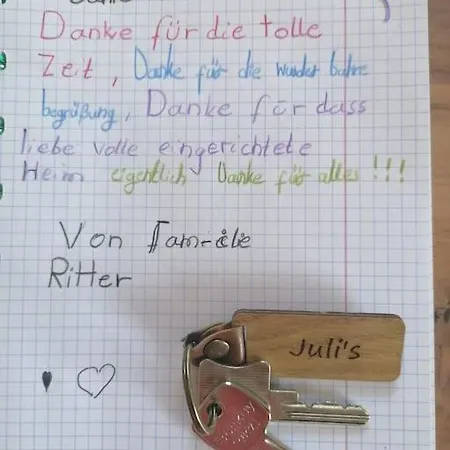 Danke für die tolle
Zeit, Danke für die wunder bahre
begrüßung, Danke für dass
liebe volle eingerichtete
Heim eigentlich Danke für alles!!!
Von Familie
Ritter
Juli's